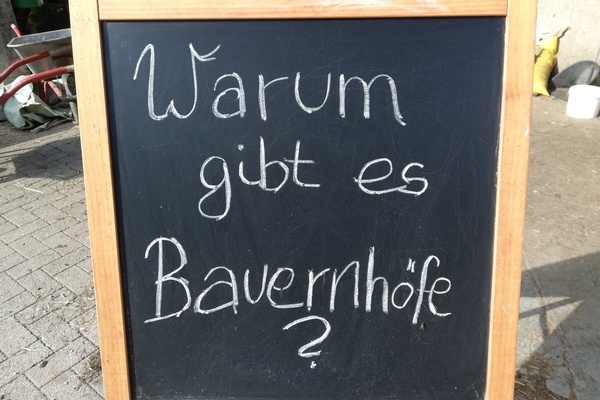 Warum
gibt es
Bauernhöfe
?